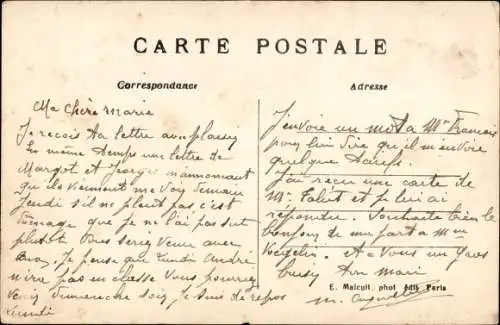 CARTE POSTALE
Correspondance
Adresse
Ma chère Marie
Je reçois ta lettre avec plaisir
En même temps une lettre de
Margot et Georges m'annonçant
qu'ils viennent me voir demain
Jeudi s'il ne pleut pas c'est
que je ne l'ai pas su
plus tôt Vous seriez venue avec
Je pense que Lundi André
n'ire pas en classe Vous pourriez
venir dimanche soir je suis de repos
Lundi
J'envoie un mot a Mr François
pour lui dire qu'il m'envoie
quelque
J'ai reçu une carte de
Mr et je lui ai
répondu. Souhaite bien le
bonjour de ma part a Mme
A Vous un gros
Ton Mari
E. Malcuit, phot édit. Paris